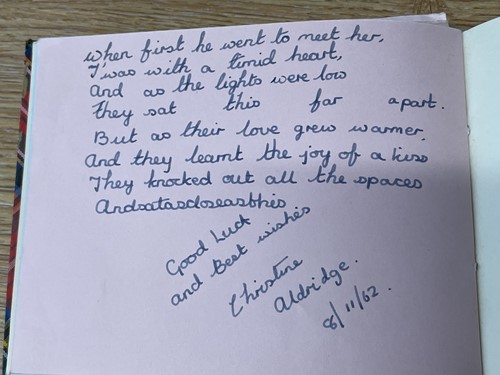 when first he went to meet her,
T'was with a timid heart,
And as the lights were low
They sat this far apart.
But as their love grew warmer,
And they learnt the joy of a kiss
They knocked out all the spaces
Andsatascloseasthis
Good Luck
and Best wishes
Christine
Aldridge.
6/11/62.